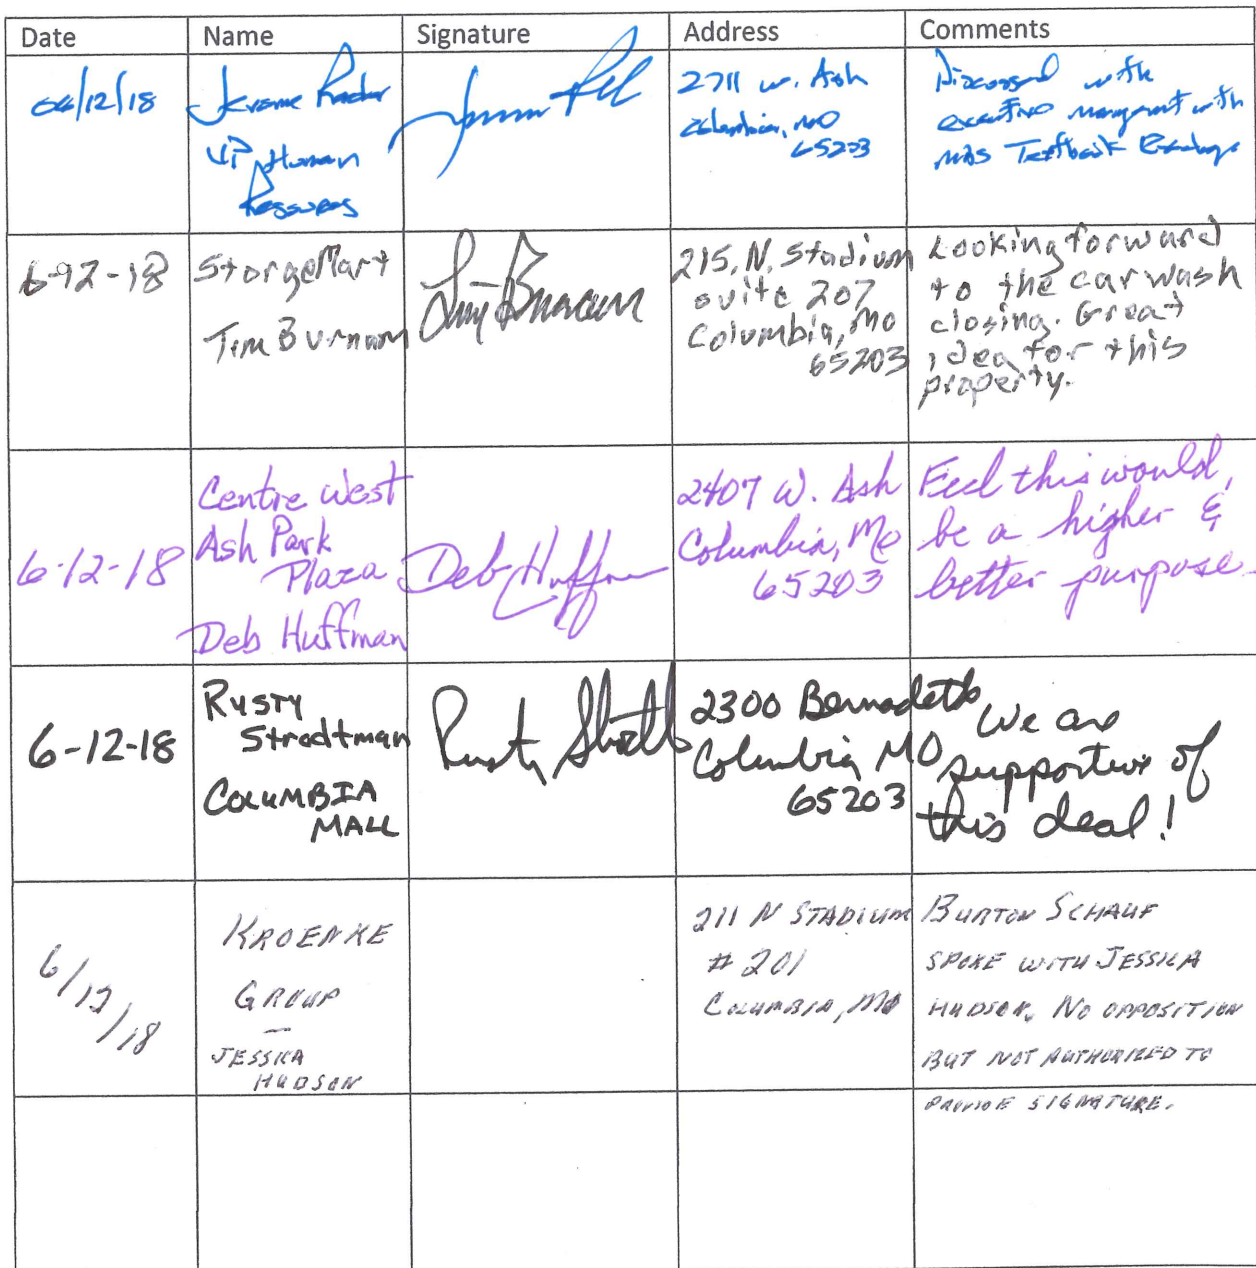 Date Name Signature Address Comments
06/12/18
Jerome Rader
VP Human
Resources
2711 w. Ash
Columbia, MO
65203
Discussed with
executive management with
MBS Textbook Exchange
6-12-18
StorgeMart
Tim Burnam
215. N. Stadium
suite 207
Columbia, Mo
65203
Looking forward
to the car wash
closing. Great
idea for this
property.
6-12-18
Centre West
Ash Park
Plaza
Deb Huffman
Deb Huffman
2407 W. Ash
Columbia, Mo
65203
Feel this would,
be a higher &
better purpose.
6-12-18
Rusty
Strodtman
COLUMBIA
MALL
Rusty
2300 Bernadette
Columbia MO
65203
We are
supportive of
this deal!
6/12/18
KROENKE
GROUP
—
JESSICA
HUDSON
211 N STADIUM
# 201
COLUMBIA, MO
BURTON SCHAUF
SPOKE WITH JESSICA
HUDSON. NO OPPOSITION
BUT NOT AUTHORIZED TO
PROVIDE SIGNATURE.